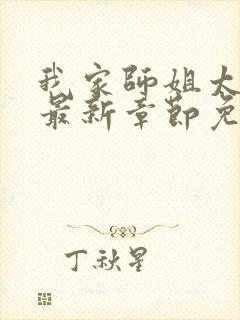 我家师姐太
最新章节免
丁秋星